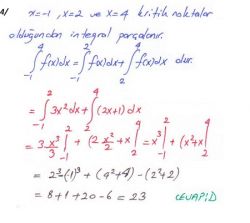 A/ x=-1, x=2 ve x=4 kritik noktalar
olduğundan integral parçalanır.
∫₋₁⁴ f(x)dx = ∫₋₁² f(x)dx + ∫₂⁴ f(x)dx dir.
= ∫₋₁² 3x² dx + ∫₂⁴ (2x+1) dx
= 3 x³/3 |₋₁² + (2 x²/2 + x |₂⁴ = x³ |₋₁² + (x²+x |₂⁴
= 2³-(-1)³ + (4²+4) - (2²+2)
= 8+1+20-6 = 23 CEVAP:D